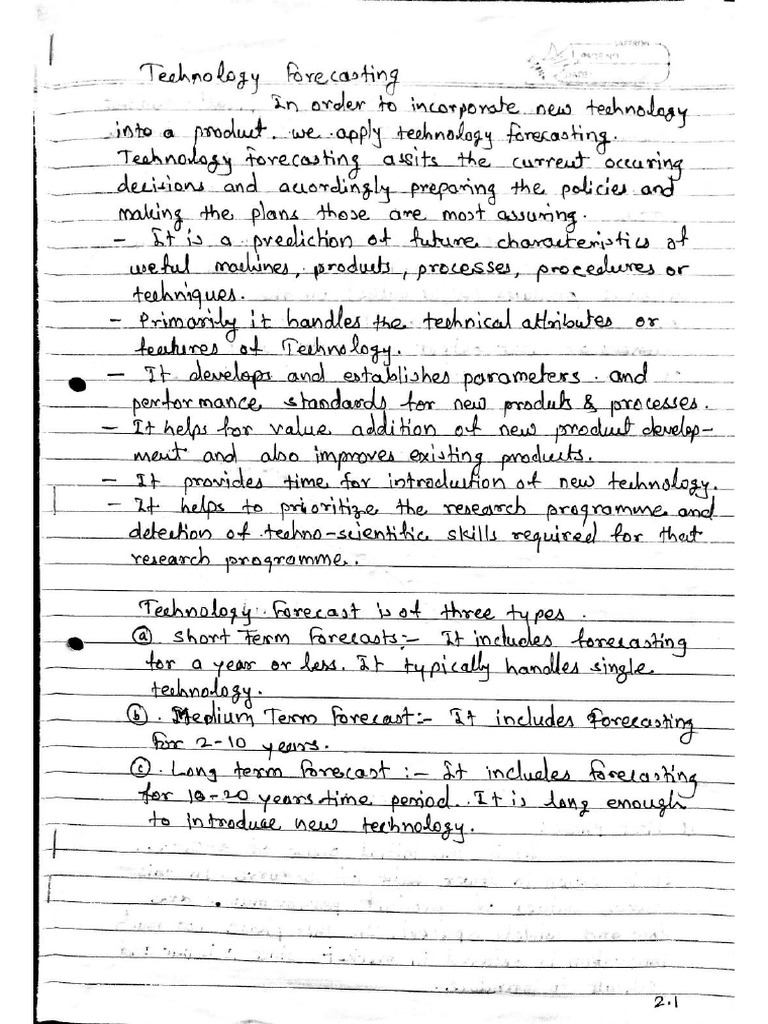 Technology Forecasting
In order to incorporate new technology
into a product. we apply technology forecasting.
Technology forecasting assits the current occuring
decisions and accordingly preparing the policies and
making the plans those are most assuring.
- It is a prediction of future characteristics of
useful machines, products, processes, procedures or
techniques.
- Primarily it handles the technical attributes or
features of Technology.
- It develops and establishes parameters. and
performance standards for new produts & processes.
- It helps for value addition of new product develop-
ment and also improves existing products.
- It provides time for introduction of new technology.
- It helps to prioritize the research programme and
detection of techno-scientific skills required for that
research programme.
Technology Forecast is of three types.
(a) Short Term Forecasts:- It includes forecasting
for a year or less. It typically handles single
technology.
(b). Medium Term Forecast:- It includes Forecasting
for 2-10 years.
(c). Long term Forecast :- It includes forecasting
for 10-20 years time period. It is long enough
to introduce new technology.
2.1